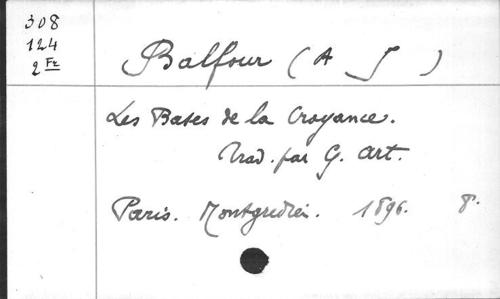 308
124
2 Fr
Balfour (A J)
Les Bases de la Croyance.
Trad. par G. Art.
Paris. Montgredien. 1896. 8°.